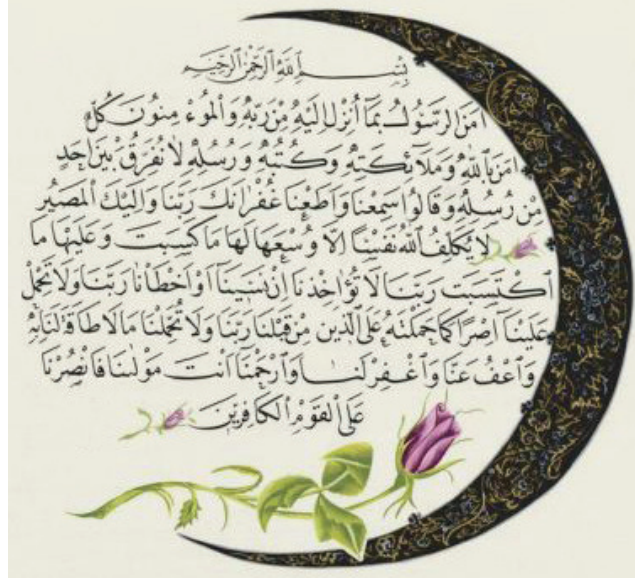 بِسْمِ اللَّهِ الرَّحْمٰنِ الرَّحِيمِ
اٰمَنَ الرَّسُولُ بِمَٓا اُنْزِلَ اِلَيْهِ مِنْ رَبِّهٖ وَالْمُوءْمِنُونَ كُلٌّ
اٰمَنَ بِاللّٰهِ وَمَلٰٓائِكَتِهٖ وَكُتُبِهٖ وَرُسُلِهٖ لَا نُفَرِّقُ بَيْنَ اَحَدٍ
مِنْ رُسُلِهٖ وَقَالُوا سَمِعْنَا وَاَطَعْنَا غُفْرَانَكَ رَبَّنَا وَاِلَيْكَ الْمَصِيرُ
لَا يُكَلِّفُ اللّٰهُ نَفْسًا اِلَّا وُسْعَهَا لَهَا مَا كَسَبَتْ وَعَلَيْهَا مَا
اكْتَسَبَتْ رَبَّنَا لَا تُؤَاخِذْنَا اِنْ نَسِينَا اَوْ اَخْطَأْنَا رَبَّنَا وَلَا تَحْمِلْ
عَلَيْنَا اِصْرًا كَمَا حَمَلْتَهُ عَلَى الَّذِينَ مِنْ قَبْلِنَا رَبَّنَا وَلَا تُحَمِّلْنَا مَا لَا طَاقَةَ لَنَا بِهٖ
وَاعْفُ عَنَّا وَاغْفِرْ لَنَا وَارْحَمْنَا اَنْتَ مَوْلٰينَا فَانْصُرْنَا
عَلَى الْقَوْمِ الْكَافِرِينَ